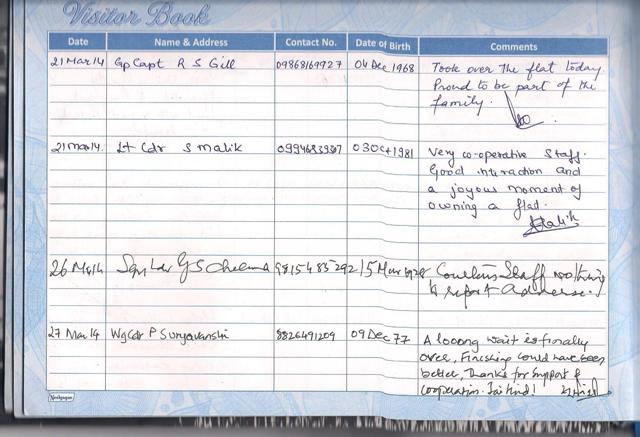 Visitor Book
Date Name & Address Contact No. Date of Birth Comments
21 Mar 14 Gp Capt R S Gill 09868169727 04 Dec 1968 Took over the flat today.
Proud to be part of the
family.
21 Mar 14. Lt Cdr S Malik 03 Oct 1981 Very co-operative Staff.
Good interaction and
a joyous moment of
owning a flat.
Malik
26 Mar 14 Sqn Ldr G S Cheema 9815485292 15 Mar Staff nothing
to report adverse.
27 Mar 14 Wg Cdr P Suryavanshi 8826491209 09 Dec 77 A looong wait is finally
over, Finishing could have been
better, Thanks for support &
cooperation. Jai Hind!
Neelgagan